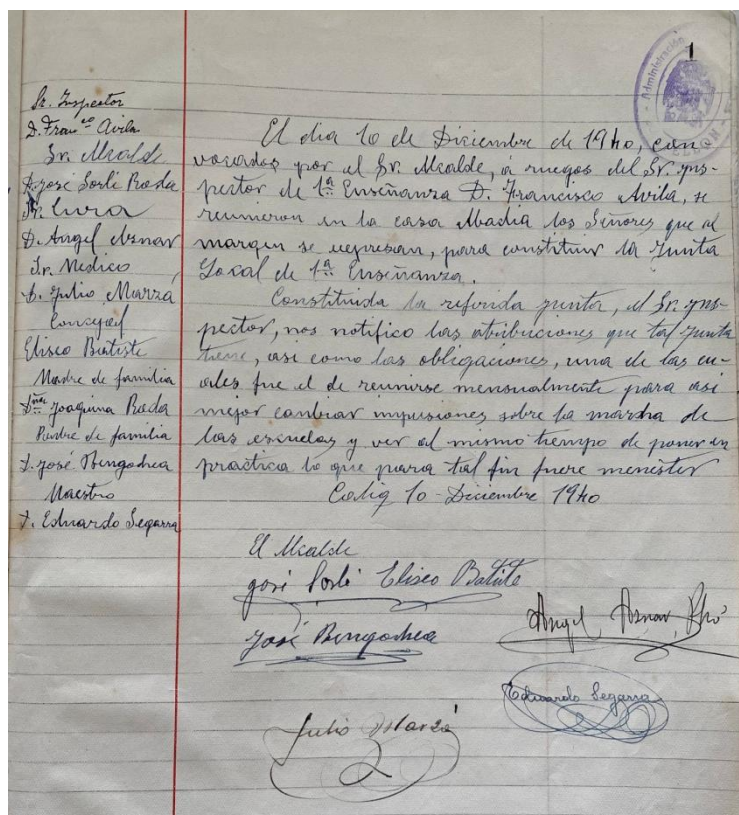 1
Administración
Sr. Inspector
D. Fran.co Avila
Sr. Alcalde
D. José Sorli Roda
Sr. Cura
D. Angel Aznar
Sr. Medico
D. Julio Marzá
Concejal
Eliseo Batiste
Madre de familia
Dña Joaquina Roda
Padre de familia
D. José Bengochea
Maestro
D. Eduardo Segarra
El dia 10 de Diciembre de 1940, con
vocados por el Sr. Alcalde, á ruegos del Sr. Yns-
pector de 1ª Enseñanza D. Francisco Avila, se
reunieron en la casa Abadia los Señores que al
margen se expresan, para constituir la Junta
Local de 1ª Enseñanza.
Constituida la referida junta, el Sr. yns-
pector, nos notifico las atribuciones que tal Junta
tiene, asi como las obligaciones, una de las cu-
ales fue el de reunirse mensualmente para asi
mejor cambiar impresiones sobre la marcha de
las escuelas y ver al mismo tiempo de poner en
practica lo que para tal fin fuere menester
Calig 10-Diciembre 1940
El Alcalde
José Sorli Eliseo Batiste
José Bengochea
Angel Aznar, Pbro
Eduardo Segarra
Julio Marzá